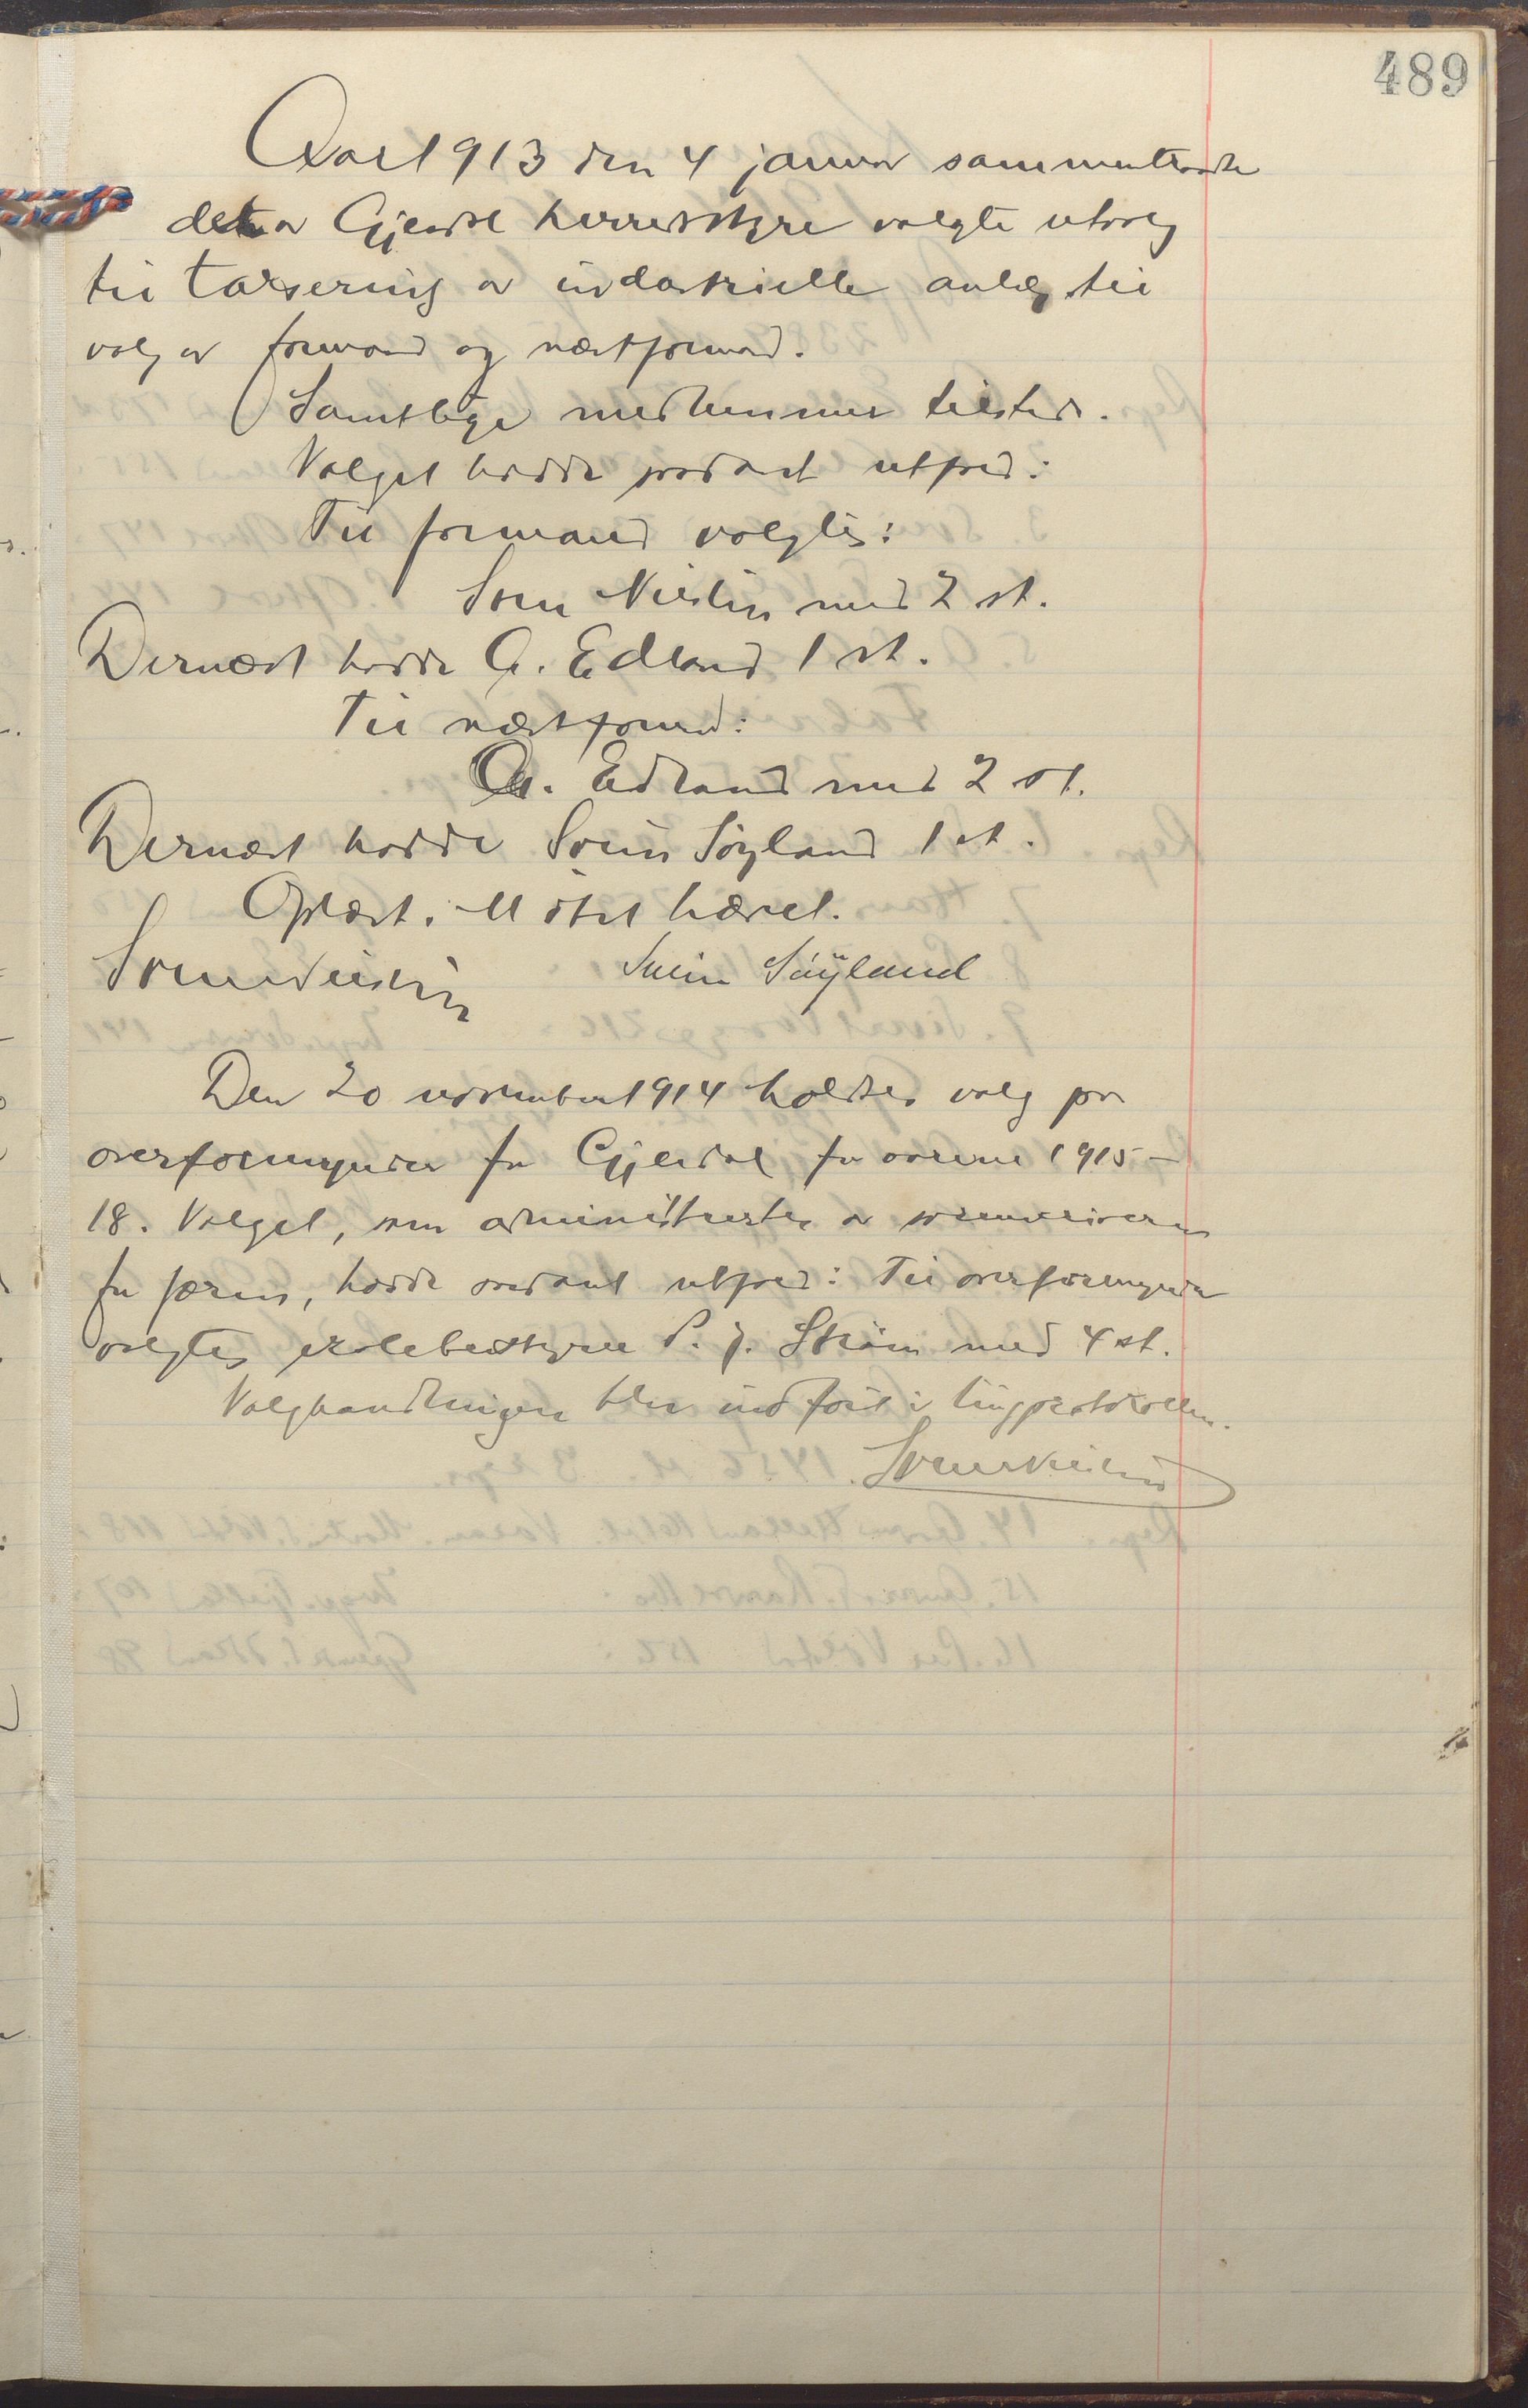 489
Aar 1913 den 4 januar sammentraadte
det av Gjesdal herredsstyre valgte utvalg
til taxsering av industrielle anlæg til
valg av formand og næstformand.
Samtlige medlemmer tilstede.
Valget hadde saadant utfald:
Til formand valgtes:
Sven med 2 st.
Dernæst hadde A. Edland 1 st.
Til næstformd:
A. Edland med 2 st.
Dernæst hadde Svein Söyland 1 st.
Oplæst. Mötet hævet.
Svein Söyland
Den 20 november 1914 holdtes valg paa
overformynder for Gjesdal for aarene 1915-
18. Valget, som administrertes av sorenskriveren
for Jæren, hadde saadant utfald: Til overformynder
valgtes skolebestyrer P. J. Ström med 4 st.
Valghandlingen blev indfört i tingprotokollen.